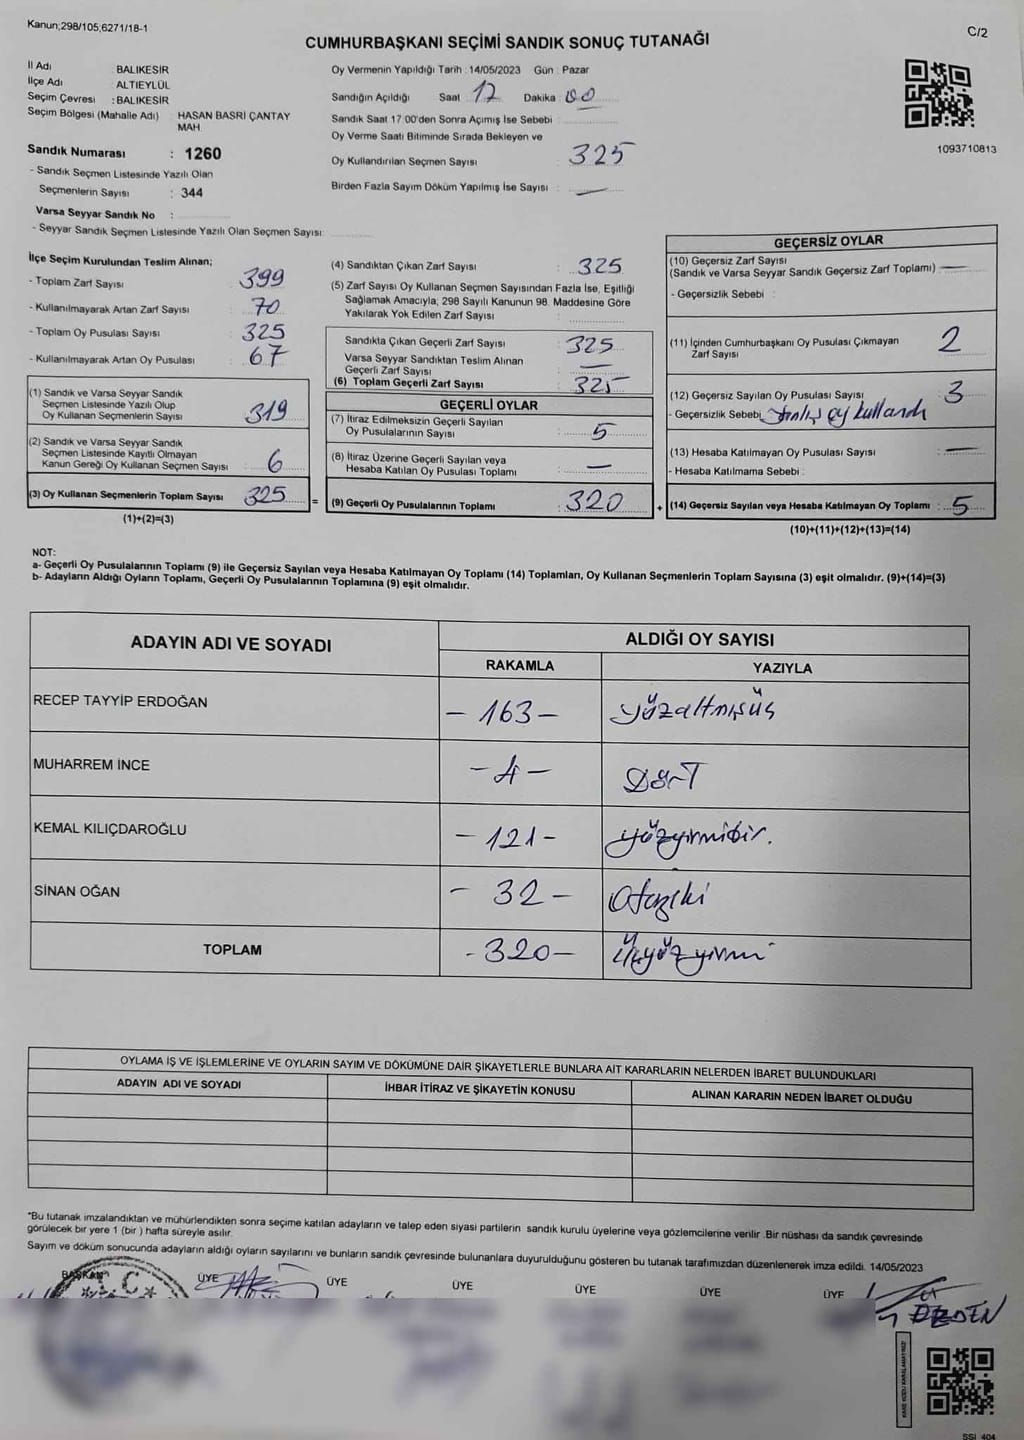 Kanun;298/105;6271/18-1
C/2
CUMHURBAŞKANI SEÇİMİ SANDIK SONUÇ TUTANAĞI
İl Adı BALIKESİR
İlçe Adı ALTIEYLÜL
Seçim Çevresi :BALIKESİR
Seçim Bölgesi (Mahalle Adı) : HASAN BASRİ ÇANTAY MAH
Sandık Numarası : 1260
- Sandık Seçmen Listesinde Yazılı Olan
Seçmenlerin Sayısı : 344
Varsa Seyyar Sandık No :
- Seyyar Sandık Seçmen Listesinde Yazılı Olan Seçmen Sayısı:
Oy Vermenin Yapıldığı Tarih : 14/05/2023 Gün : Pazar
Sandığın Açıldığı Saat 17 Dakika : 00
Sandık Saat 17:00'den Sonra Açımış İse Sebebi :
Oy Verme Saati Bitiminde Sırada Bekleyen ve
Oy Kullandırılan Seçmen Sayısı : 325
Birden Fazla Sayım Döküm Yapılmış İse Sayısı : —
1093710813
İlçe Seçim Kurulundan Teslim Alınan;
- Toplam Zarf Sayısı : 399
- Kullanılmayarak Artan Zarf Sayısı : 70
- Toplam Oy Pusulası Sayısı : 325
- Kullanılmayarak Artan Oy Pusulası : 67
(1) Sandık ve Varsa Seyyar Sandık
Seçmen Listesinde Yazılı Olup
Oy Kullanan Seçmenlerin Sayısı : 319
(2) Sandık ve Varsa Seyyar Sandık
Seçmen Listesinde Kayıtlı Olmayan
Kanun Gereği Oy Kullanan Seçmen Sayısı : 6
(3) Oy Kullanan Seçmenlerin Toplam Sayısı : 325
(1)+(2)=(3)
(4) Sandıktan Çıkan Zarf Sayısı : 325
(5) Zarf Sayısı Oy Kullanan Seçmen Sayısından Fazla İse, Eşitliği
Sağlamak Amacıyla; 298 Sayılı Kanunun 98. Maddesine Göre
Yakılarak Yok Edilen Zarf Sayısı :
Sandıkta Çıkan Geçerli Zarf Sayısı : 325
Varsa Seyyar Sandıktan Teslim Alınan
Geçerli Zarf Sayısı : —
(6) Toplam Geçerli Zarf Sayısı : 325
GEÇERLİ OYLAR
(7) İtiraz Edilmeksizin Geçerli Sayılan
Oy Pusulalarının Sayısı : 5
(8) İtiraz Üzerine Geçerli Sayılan veya
Hesaba Katılan Oy Pusulası Toplamı : —
= (9) Geçerli Oy Pusulalarının Toplamı : 320
GEÇERSİZ OYLAR
(10) Geçersiz Zarf Sayısı
(Sandık ve Varsa Seyyar Sandık Geçersiz Zarf Toplamı) : —
- Geçersizlik Sebebi :
(11) İçinden Cumhurbaşkanı Oy Pusulası Çıkmayan
Zarf Sayısı : 2
(12) Geçersiz Sayılan Oy Pusulası Sayısı : 3
- Geçersizlik Sebebi : Yanlış oy kullandı
(13) Hesaba Katılmayan Oy Pusulası Sayısı : —
- Hesaba Katılmama Sebebi :
+ (14) Geçersiz Sayılan veya Hesaba Katılmayan Oy Toplamı : 5
(10)+(11)+(12)+(13)=(14)
NOT:
a- Geçerli Oy Pusulalarının Toplamı (9) ile Geçersiz Sayılan veya Hesaba Katılmayan Oy Toplamı (14) Toplamları, Oy Kullanan Seçmenlerin Toplam Sayısına (3) eşit olmalıdır. (9)+(14)=(3)
b- Adayların Aldığı Oyların Toplamı, Geçerli Oy Pusulalarının Toplamına (9) eşit olmalıdır.
ADAYIN ADI VE SOYADI ALDIĞI OY SAYISI
RAKAMLA YAZIYLA
RECEP TAYYİP ERDOĞAN - 163 - yüzaltmışüç
MUHARREM İNCE - 4 - Dört
KEMAL KILIÇDAROĞLU - 121 - yüzyirmibir.
SİNAN OĞAN - 32 - Otuziki
TOPLAM - 320 - Üçyüzyirmi
OYLAMA İŞ VE İŞLEMLERİNE VE OYLARIN SAYIM VE DÖKÜMÜNE DAİR ŞİKAYETLERLE BUNLARA AİT KARARLARIN NELERDEN İBARET BULUNDUKLARI
ADAYIN ADI VE SOYADI İHBAR İTİRAZ VE ŞİKAYETİN KONUSU ALINAN KARARIN NEDEN İBARET OLDUĞU
*Bu tutanak imzalandıktan ve mühürlendikten sonra seçime katılan adayların ve talep eden siyasi partilerin sandık kurulu üyelerine veya gözlemcilerine verilir .Bir nüshası da sandık çevresinde
görülecek bir yere 1 (bir ) hafta süreyle asılır.
Sayım ve döküm sonucunda adayların aldığı oyların sayılarını ve bunların sandık çevresinde bulunanlara duyurulduğunu gösteren bu tutanak tarafımızdan düzenlenerek imza edildi. 14/05/2023
BAŞKAN ÜYE ÜYE ÜYE ÜYE ÜYE ÜYE
T.C.
KARE KODU KARALAMAYINIZ!
SSİ 404